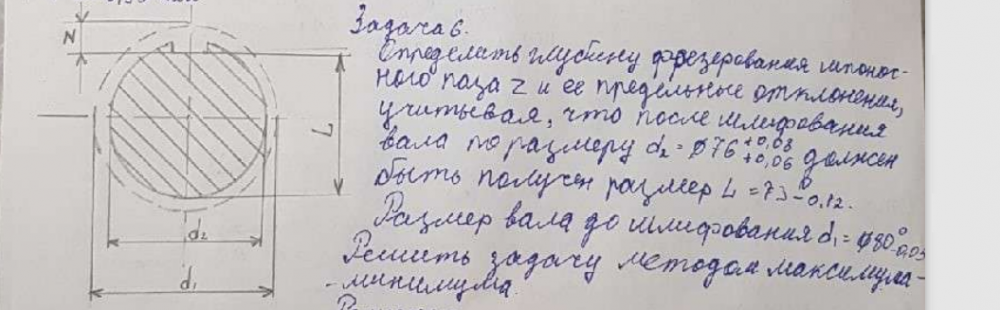 Задача 6.
Определить глубину фрезерования шпоноч-
ного паза Z и ее предельные отклонения,
учитывая, что после шлифования
вала по размеру d₂ = ⌀76 +0,08 +0,06 должен
быть получен размер L = 73 0 -0,12.
Размер вала до шлифования d₁ = ⌀80 0 -0,05
Решить задачу методом максимума-
-минимума.
N
L
d₂
d₁